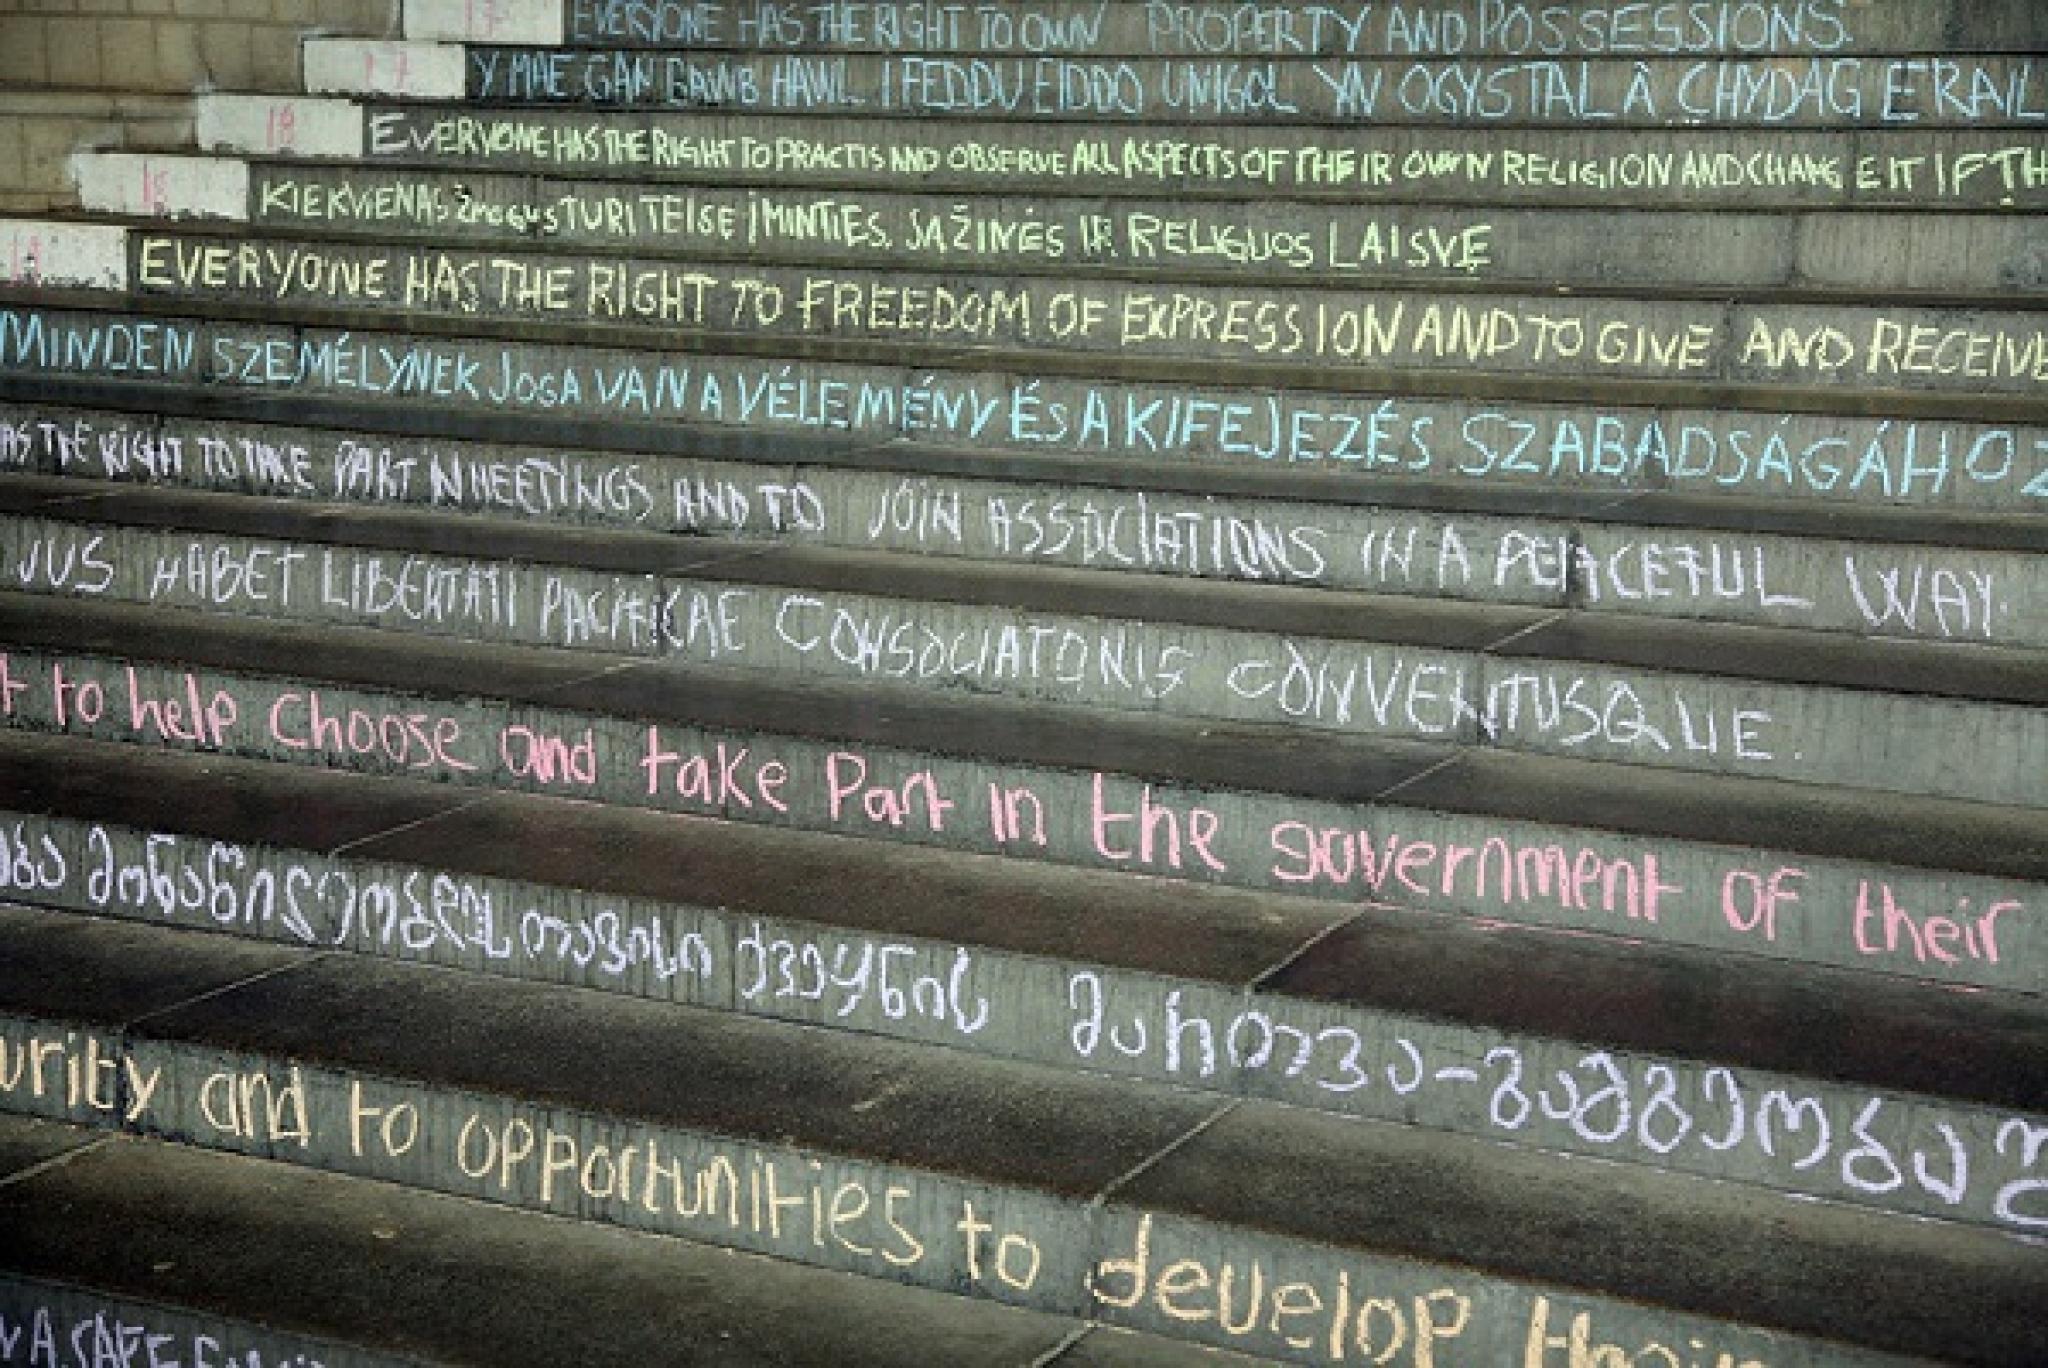 17 EVERYONE HAS THE RIGHT TO OWN PROPERTY AND POSSESSIONS.
17 Y MAE GAN GAWB HAWL I FEDDU EIDDO UNIGOL YN OGYSTAL Â CHYDAG ERAIL
18 EVERYONE HAS THE RIGHT TO PRACTIS AND OBSERVE ALL ASPECTS OF THEIR OWN RELIGION AND CHANGE IT IF TH
18 KIEKVIENAS ŽMOGUS TURI TEISĘ Į MINTIES, SĄŽINĖS IR RELIGIJOS LAISVĘ
19 EVERYONE HAS THE RIGHT TO FREEDOM OF EXPRESSION AND TO GIVE AND RECEIVE
MINDEN SZEMÉLYNEK JOGA VAN A VÉLEMÉNY ÉS A KIFEJEZÉS SZABADSÁGÁHOZ
AS THE RIGHT TO TAKE PART IN MEETINGS AND TO JOIN ASSOCIATIONS IN A PEACEFUL WAY.
JUS HABET LIBERTATI PACIFICAE CONSOCIATONIS CONVENTUSQUE.
t to help choose and take Part in the government of their
ება მონაწილეობდეს თავისი ქვეყნის მართვა-გამგეობაშ
urity and to opportunities to develop their
N A SAFE